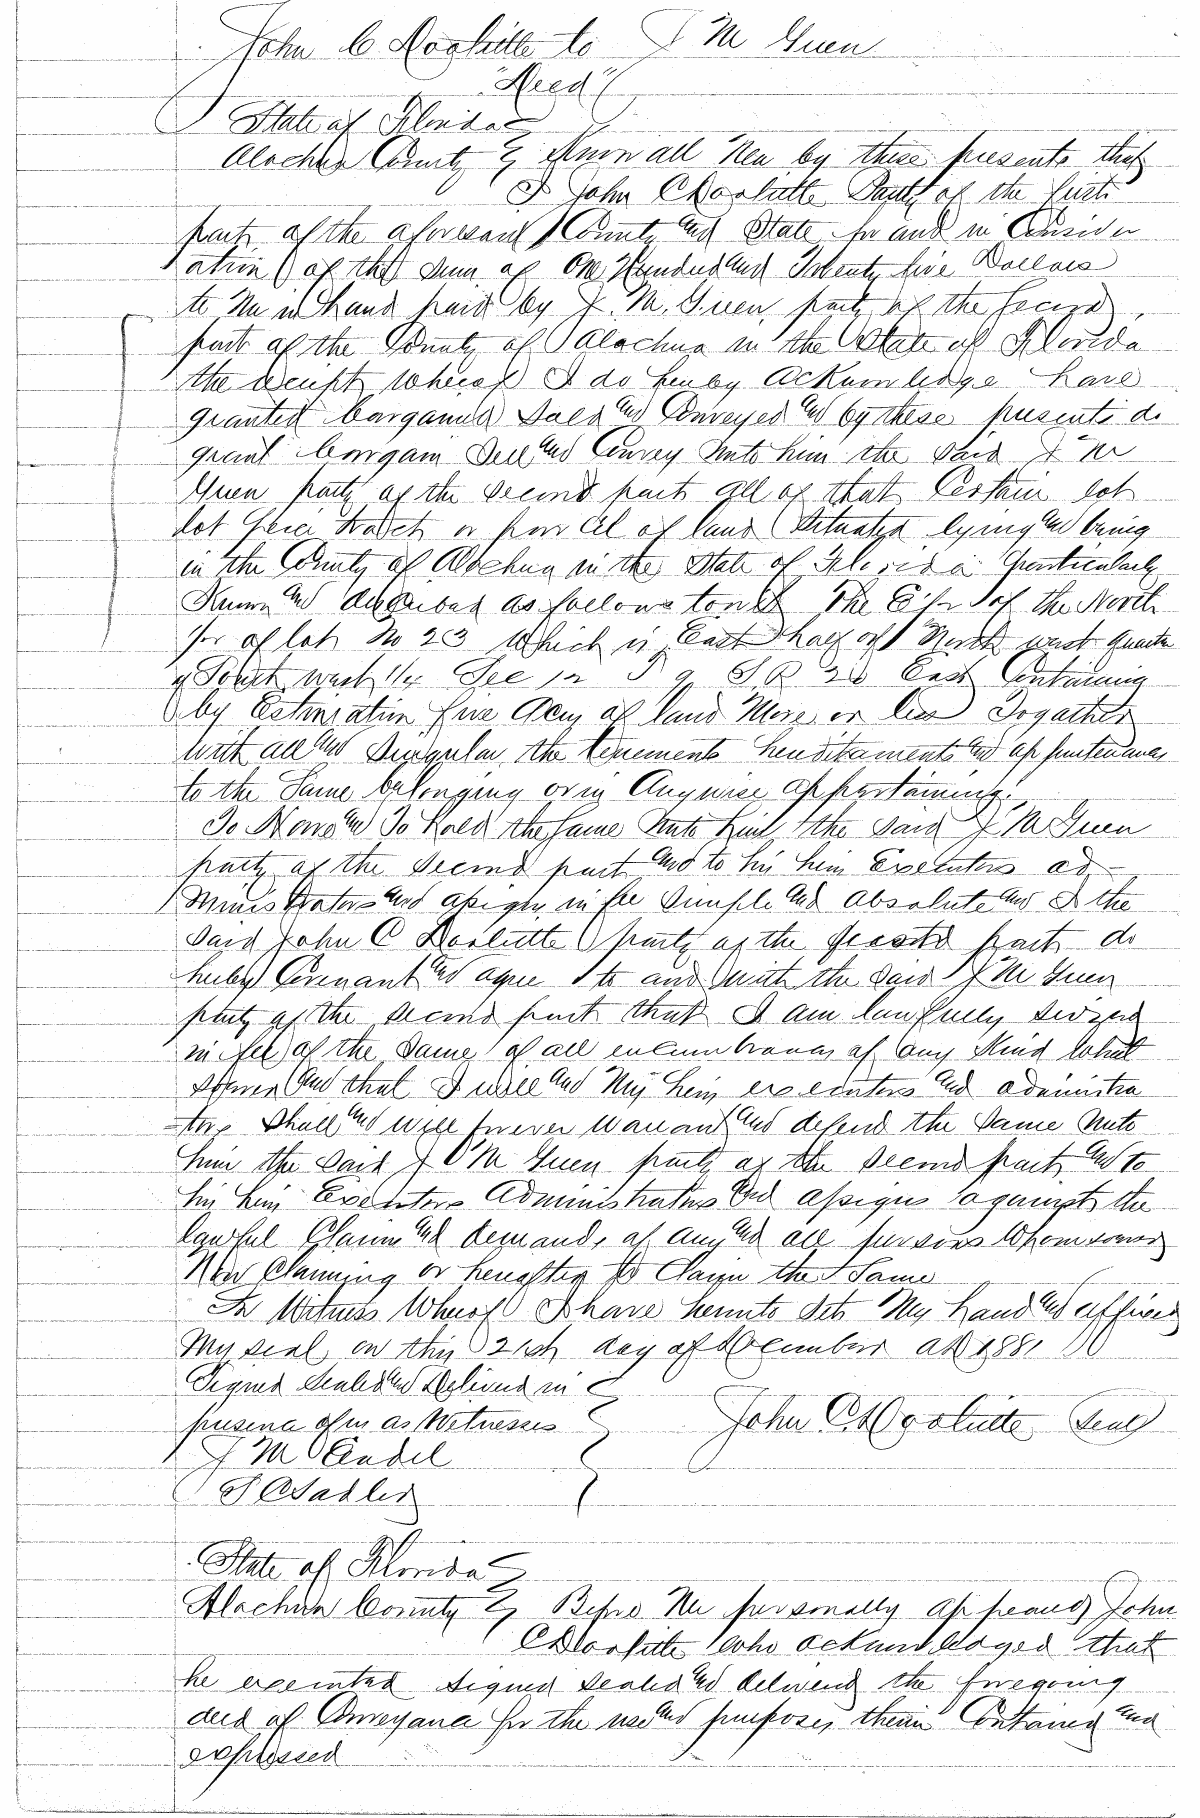 John C Doolittle to J M Guen
"Deed"
State of Florida
Alachua County Know all Men by these presents that
I John C Doolittle Party of the first
part of the aforesaid County and State for and in Consider
ation of the Sum of One Hundred and Twenty five Dollars
to Me in hand paid by J. M. Guen party of the Second
part of the County of Alachua in the State of Florida
the receipt whereof I do hereby acknowledge have
granted bargained Sold and Conveyed and by these presents do
grant bargain Sell and Convey Unto him the Said J M
Guen party of the Second part all of that Certain lot
lot piece tract or parcel of land Situated lying and being
in the County of Alachua in the State of Florida particularly
Known and described as follows to wit The E 1/2 of the North
1/2 of lot No 23 Which is East half of North west quarter
of South west 1/4 Sec 12 T 9 S R 20 East Containing
by Estimation five Acres of land More or less Together
with all and Singular the tenements hereditaments and appurtenances
to the Same belonging or in Anywise appertaining.
To Have and To hold the Same Unto him the Said J M Guen
party of the Second part and to his heirs Executors ad
Ministrators and assigns in fee Simple and absolute and I the
Said John C Doolittle party of the first part do
hereby Covenant and agree to and with the Said J M Guen
party of the Second part that I am lawfully Seized
in fee of the Same of all encumbrances of any Kind What
soever and that I will and My heirs executors and administra
tors Shall and will forever Warrant and defend the Same Unto
him the Said J M Guen party of the Second part and to
his heirs Executors Administrators and assigns against the
lawful Claim and demands of any and all persons Whomsoever
Now Claiming or hereafter to Claim the Same
In Witness Whereof I have hereunto Set My hand and affixed
My seal on this 21st day of December AD 1881
Signed Sealed and Delivered in
presence of us as Witnesses John C. Doolittle Seal
J M Endel
S C Sadler
State of Florida
Alachua County Before Me personally appeared John
C Doolittle who acknowledged that
he executed Signed Sealed and delivered the foregoing
deed of Conveyance for the use and purposes therein Contained and
expressed